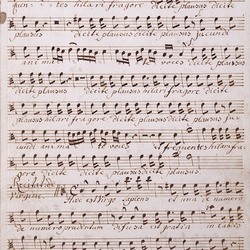 quen - tes hilari fragore dicite plausus
plausus dicite plausus dicite plausus jucundi
anima voces dicite plausus
dicite plausus dicite plausus dicite
plausus hilari fragore dicite plausus dicite plausus ju
cundi anima te voces et frequentes hilari fra
gore dicite plausus dicite plausus
Recit: de
Virgine Hæc est Virgo sapiens et una de numero
de numero prudentum diffusa est gratia in labiis